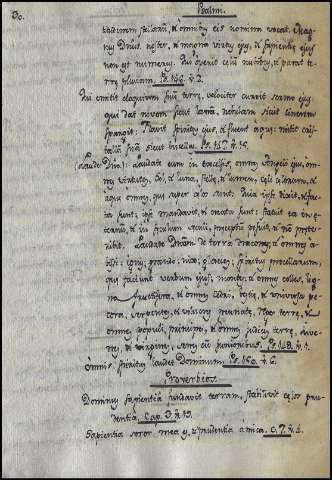 30. Psalmi.
titudinem stellarū, et omnibus eis nomina vocat. Mag-
nus Dnūs noster, et magna virtus ejus, et sapientiæ ejus
non est numerus. Qui operit celū nubibus, et parat ter-
re pluviam. Ps. 146. v. 2.
Qui emittit eloquium suū terre, velociter currit sermo ejus,
qui dat nivem sicut lanā, nebulam sicut cinerem
spargit. Flavit spiritus ejus, et fluent aque: mittit cris-
tallū suū sicut bucellas. Ps. 147. v. 15.
(Laudate Dnū.) Laudate eum in excelsis, omnes Angeli ejus, om-
nes virtutes, Sol, et luna, stelle, et lumen, celi celorum, et
aque omnes, que super celos sunt. Quia ipse dixit, et fac-
ta sunt: ipse mandavit, et creata sunt: statuit ea in e-
ternū, et in seculum seculi, preceptū posuit, et nō prete-
ribit. Laudate Dnūm de terra dracones, et omnes a-
bissi: ignis, grando, nix, glacies, spiritus procellarum,
que faciunt verbum ejus, montes, et omnes colles, lig-
na fructifera, et omnes cedri, bestie, et universa pe-
cora, serpentes, et volucres pennate, Reges terre, et
omnes populi, principes, et omnes judices terre, Juve-
nes, et virgines, senes cū junioribus. Ps. 148. v. 1.
Omnis spiritus laudet Dominum. Ps. 150. v. 6.
Proverbios.
Dominus sapientiā fundavit terram, stabilivit celos pru-
dentiā. Cap. 3. v. 19.
Sapientia soror mea es, et prudentia amica. c. 7. v. 4.